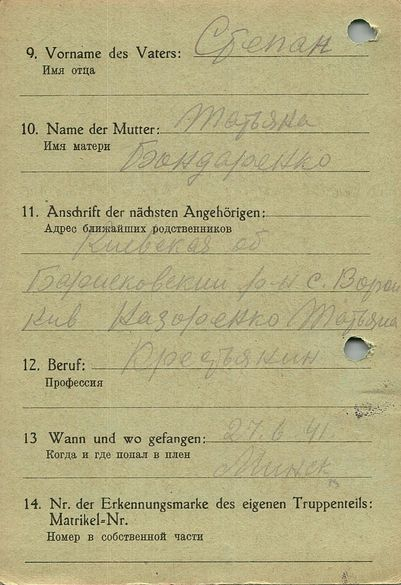 9. Vorname des Vaters: Степан
Имя отца
10. Name der Mutter: Татьяна
Имя матери
Бондаренко
11. Anschrift der nächsten Angehörigen:
Адрес ближайших родственников
Киевская об
р-н с.
Назоренко Татьяна
12. Beruf: Крестьянин
Профессия
13 Wann und wo gefangen: 27.6.41
Когда и где попал в плен
Минск
14. Nr. der Erkennungsmarke des eigenen Truppenteils:
Matrikel-Nr.
Номер в собственной части